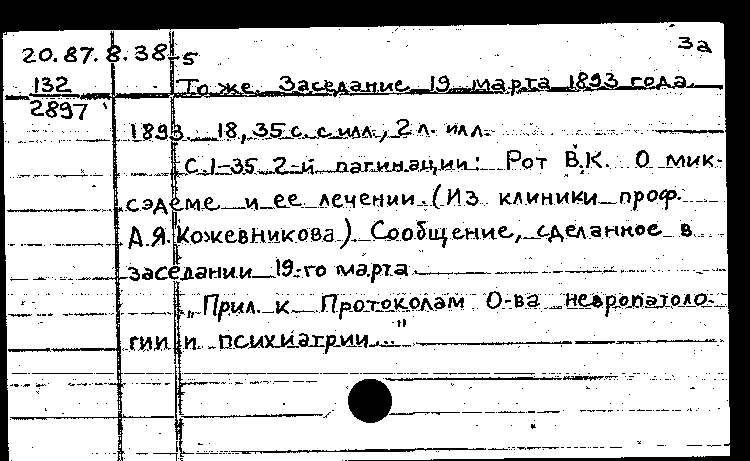 3а
20.87.8.38-5
132
2897
То же. Заседание 19 марта 1893 года.
1893. 18, 35 с. с илл., 2 л. илл.
С.1-35 2-й пагинации: Рот В.К. О мик-
сэдеме и ее лечении. (Из клиники проф.
А.Я. Кожевникова). Сообщение, сделанное в
заседании 19-го марта
„Прил. к Протоколам О-ва невропатоло-
гии и психиатрии..."